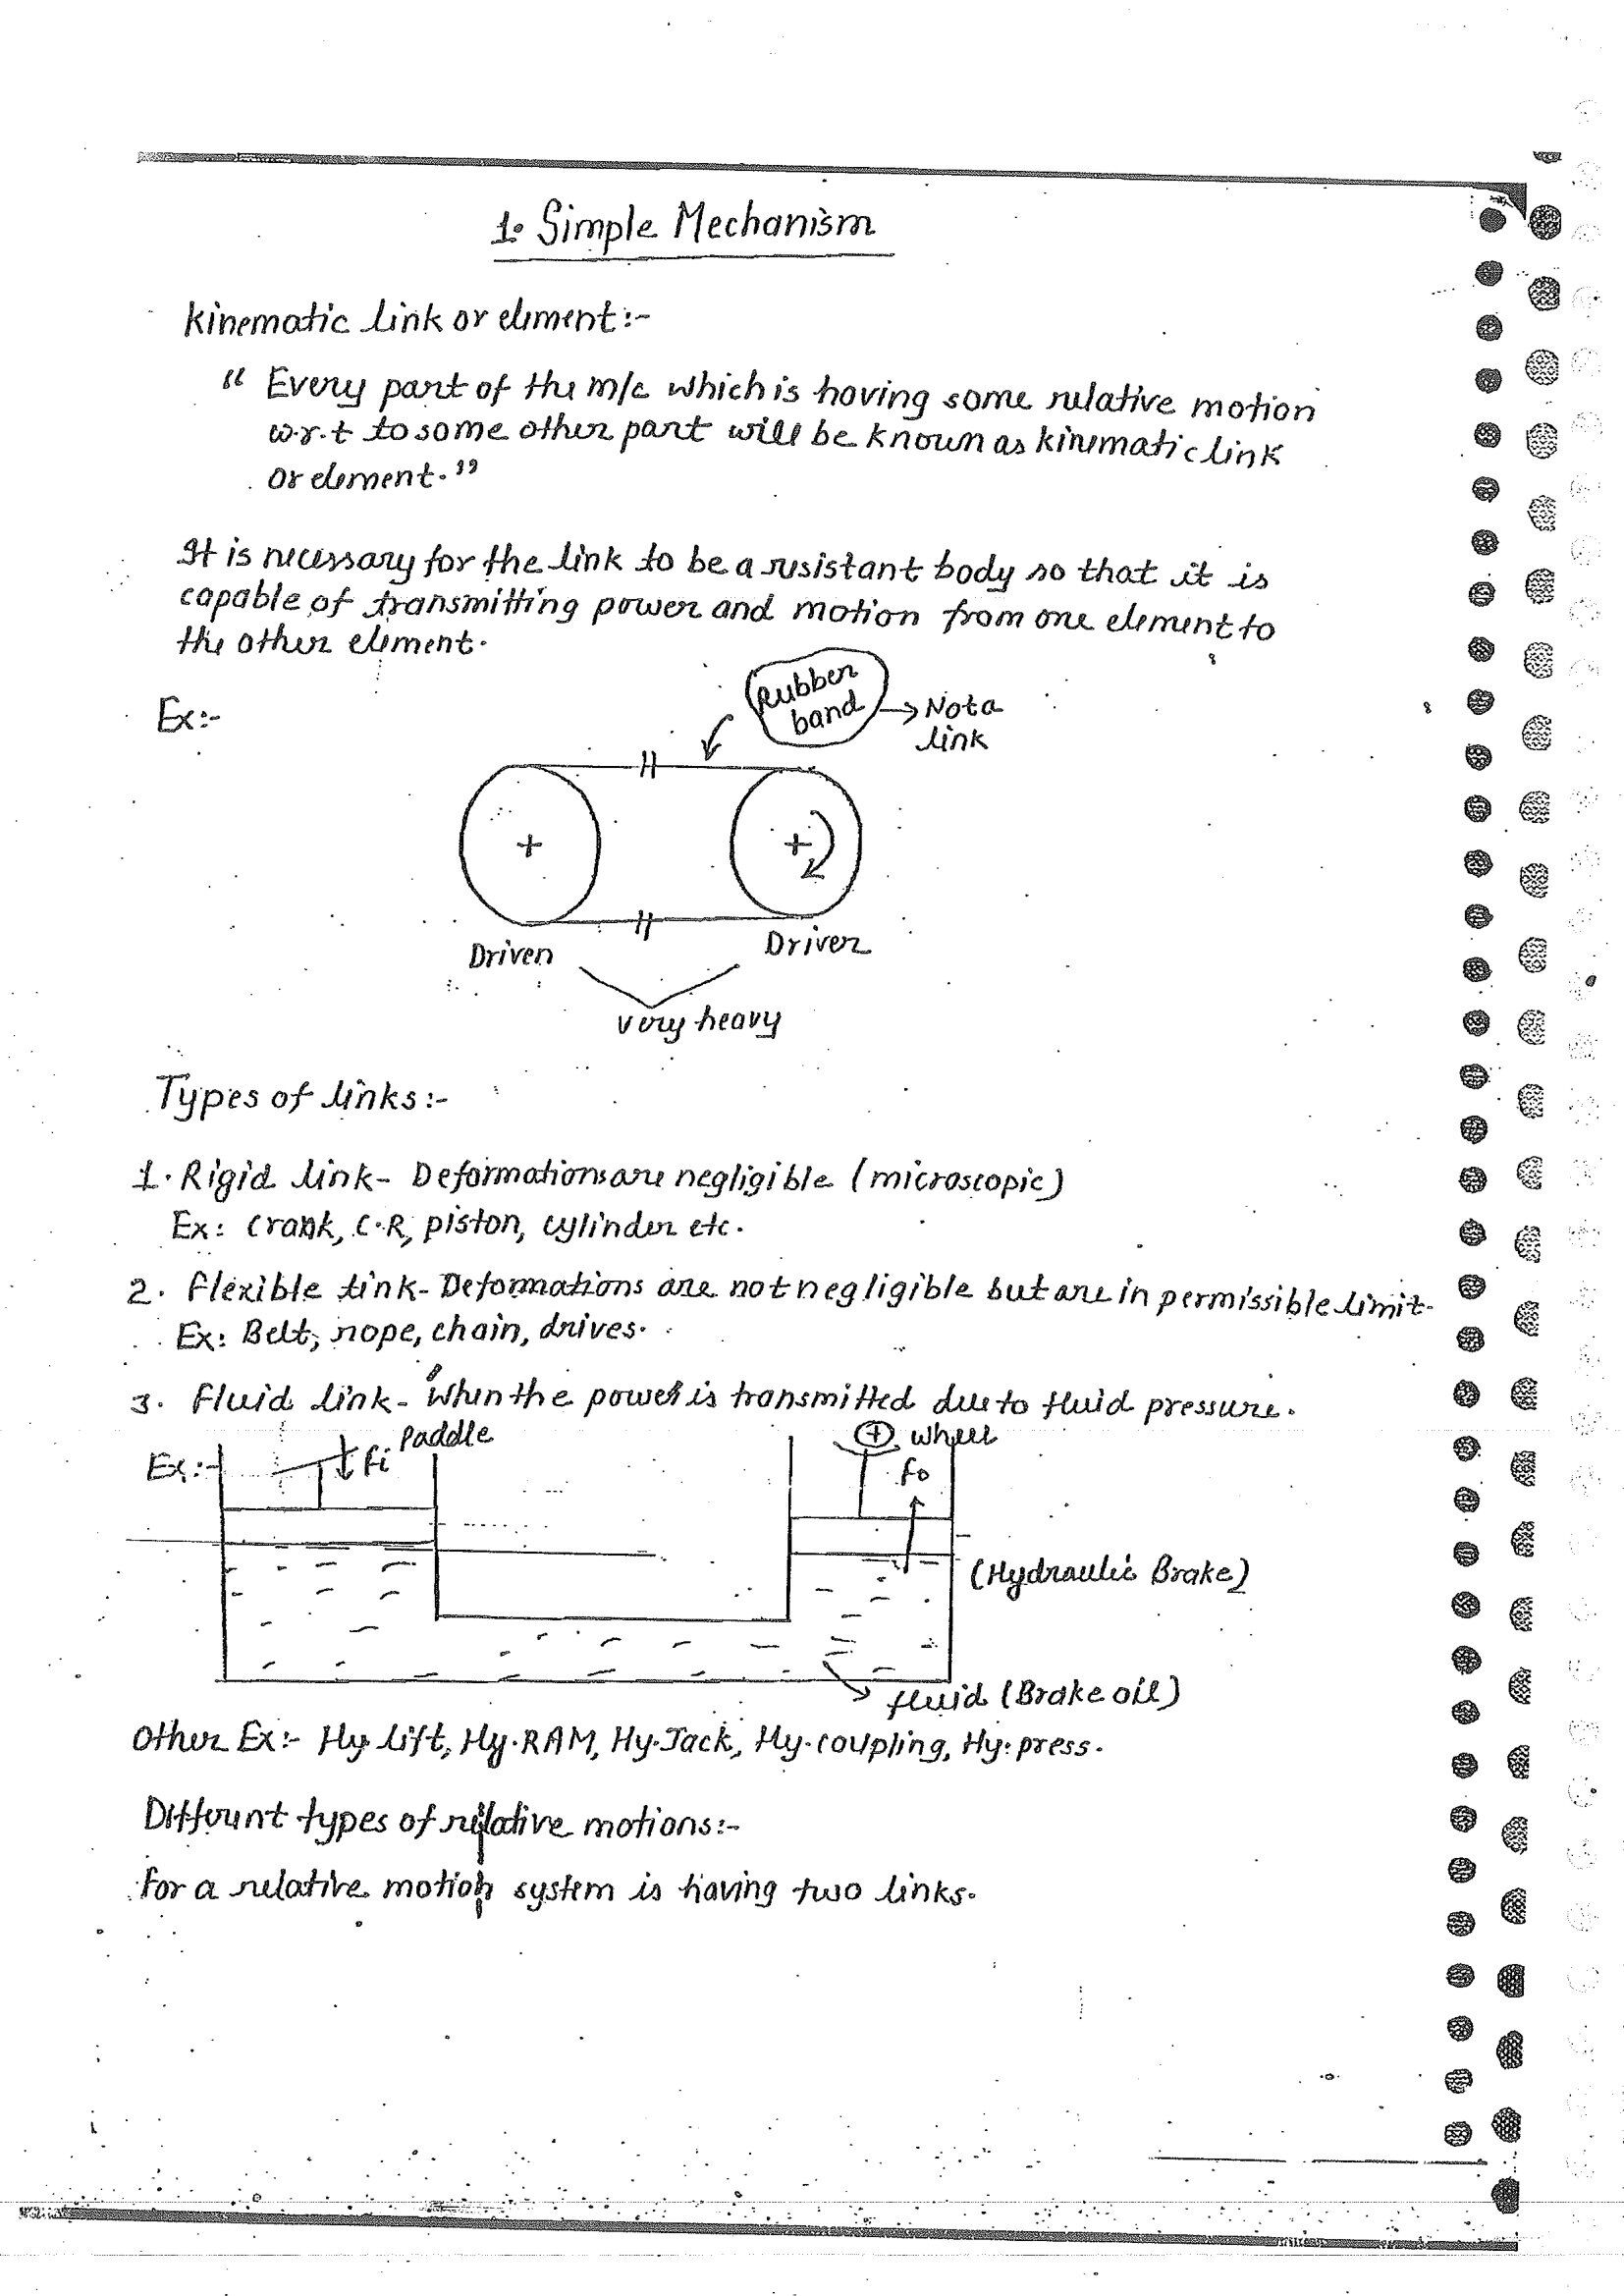 1. Simple Mechanism
Kinematic link or element:-
" Every part of the m/c which is having some relative motion
w.r.t to some other part will be known as kinematic link
or element."
It is necessary for the link to be a resistant body so that it is
capable of transmitting power and motion from one element to
the other element.
Rubber
band → Not a
link
Ex:-
Driven Driver
very heavy
Types of links:-
1. Rigid link- Deformations are negligible (microscopic)
Ex: Crank, C.R, piston, cylinder etc.
2. Flexible link- Deformations are not negligible but are in permissible limit.
Ex: Belt, rope, chain, drives.
3. Fluid link- When the power is transmitted due to fluid pressure.
Ex:- Fi Paddle
wheel
Fo
(Hydraulic Brake)
fluid (Brake oil)
Other Ex:- Hy. lift, Hy. RAM, Hy. Jack, Hy. coupling, Hy. press.
Different types of relative motions:-
For a relative motion system is having two links.